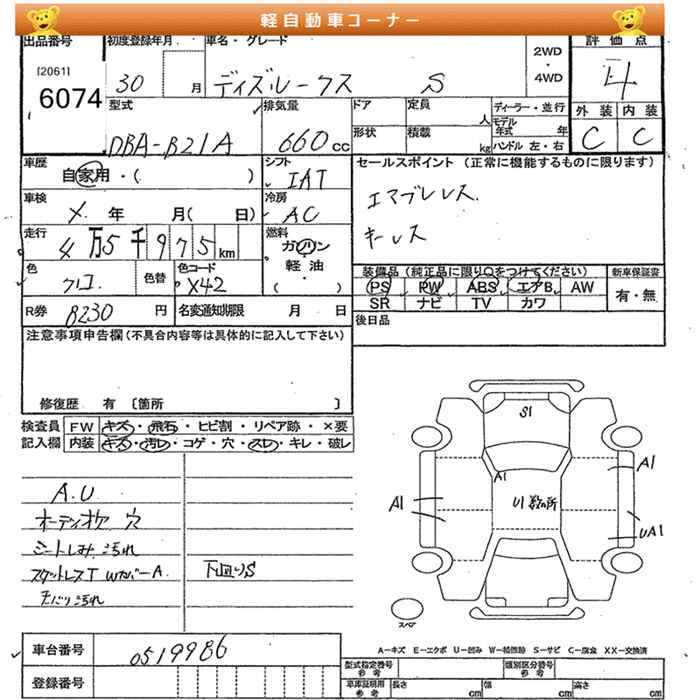 軽自動車コーナー
出品番号 初度登録年月 車名・グレード 2WD・4WD 評価点
[2061]
6074 30 月 ディズルークス S 4
型式 排気量 ドア 定員 人 ディーラー・並行 外装 内装
DBA-B21A 660cc 形状 積載 kg モデル年式 年 ハンドル 左・右 C C
車歴 自家用・( ) シフト IAT セールスポイント (正常に機能するものに限ります)
車検 メ 年 月( 日) 冷房 AC エマブレレス
走行 4万5千975km 燃料 ガソリン・軽油・( ) キーレス
色 クロ 色替 色コード X42 装備品(純正品に限り○をつけてください) 新車保証書
PS PW ABS エアB AW 有・無
SR ナビ TV カワ
R券 8230円 名変通知期限 月 日 後日品
注意事項申告欄(不具合内容等は具体的に記入して下さい)
修復歴 有 〔箇所 〕
検査員 FW キズ・飛石・ヒビ割・リペア跡・×要
記入欄 内装 キズ・汚レ・コゲ・穴・スレ・キレ・破レ
S1
A1
A1
A1
U1 数ヵ所
UA1
A.U
オーディオケ 穴
シートしみ、汚れ
スタットレスT Wカバー A 下廻りS
天バリ汚れ
スペア
A-キズ E-エクボ U-凹み W-補修跡 S-サビ C-腐食 XX-交換済
車台番号 0519986
登録番号
型式指定番号 参考 類別区分番号 参考
車庫証明用 参考 長さ cm 幅 cm 高さ cm